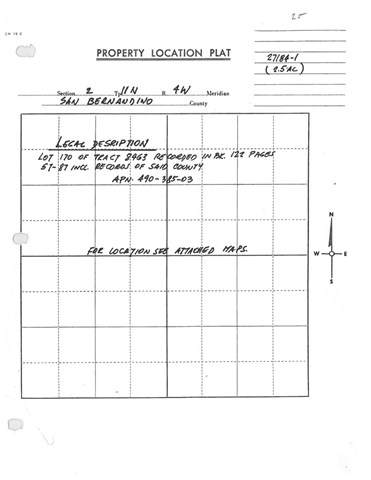 25
PROPERTY LOCATION PLAT
27184-1
(2.5 AC)
Section 2 Tp 11 N R 4W Meridian
SAN BERNANDINO County
LEGAL DESRIPTION
LOT 170 OF TRACT 8463 RECORDED IN BK 122 PAGES
57-87 INCL RECORDS OF SAID COUNTY
APN. 490-385-03
N
FOR LOCATION SEE ATTACHED MAPS.
W E
S